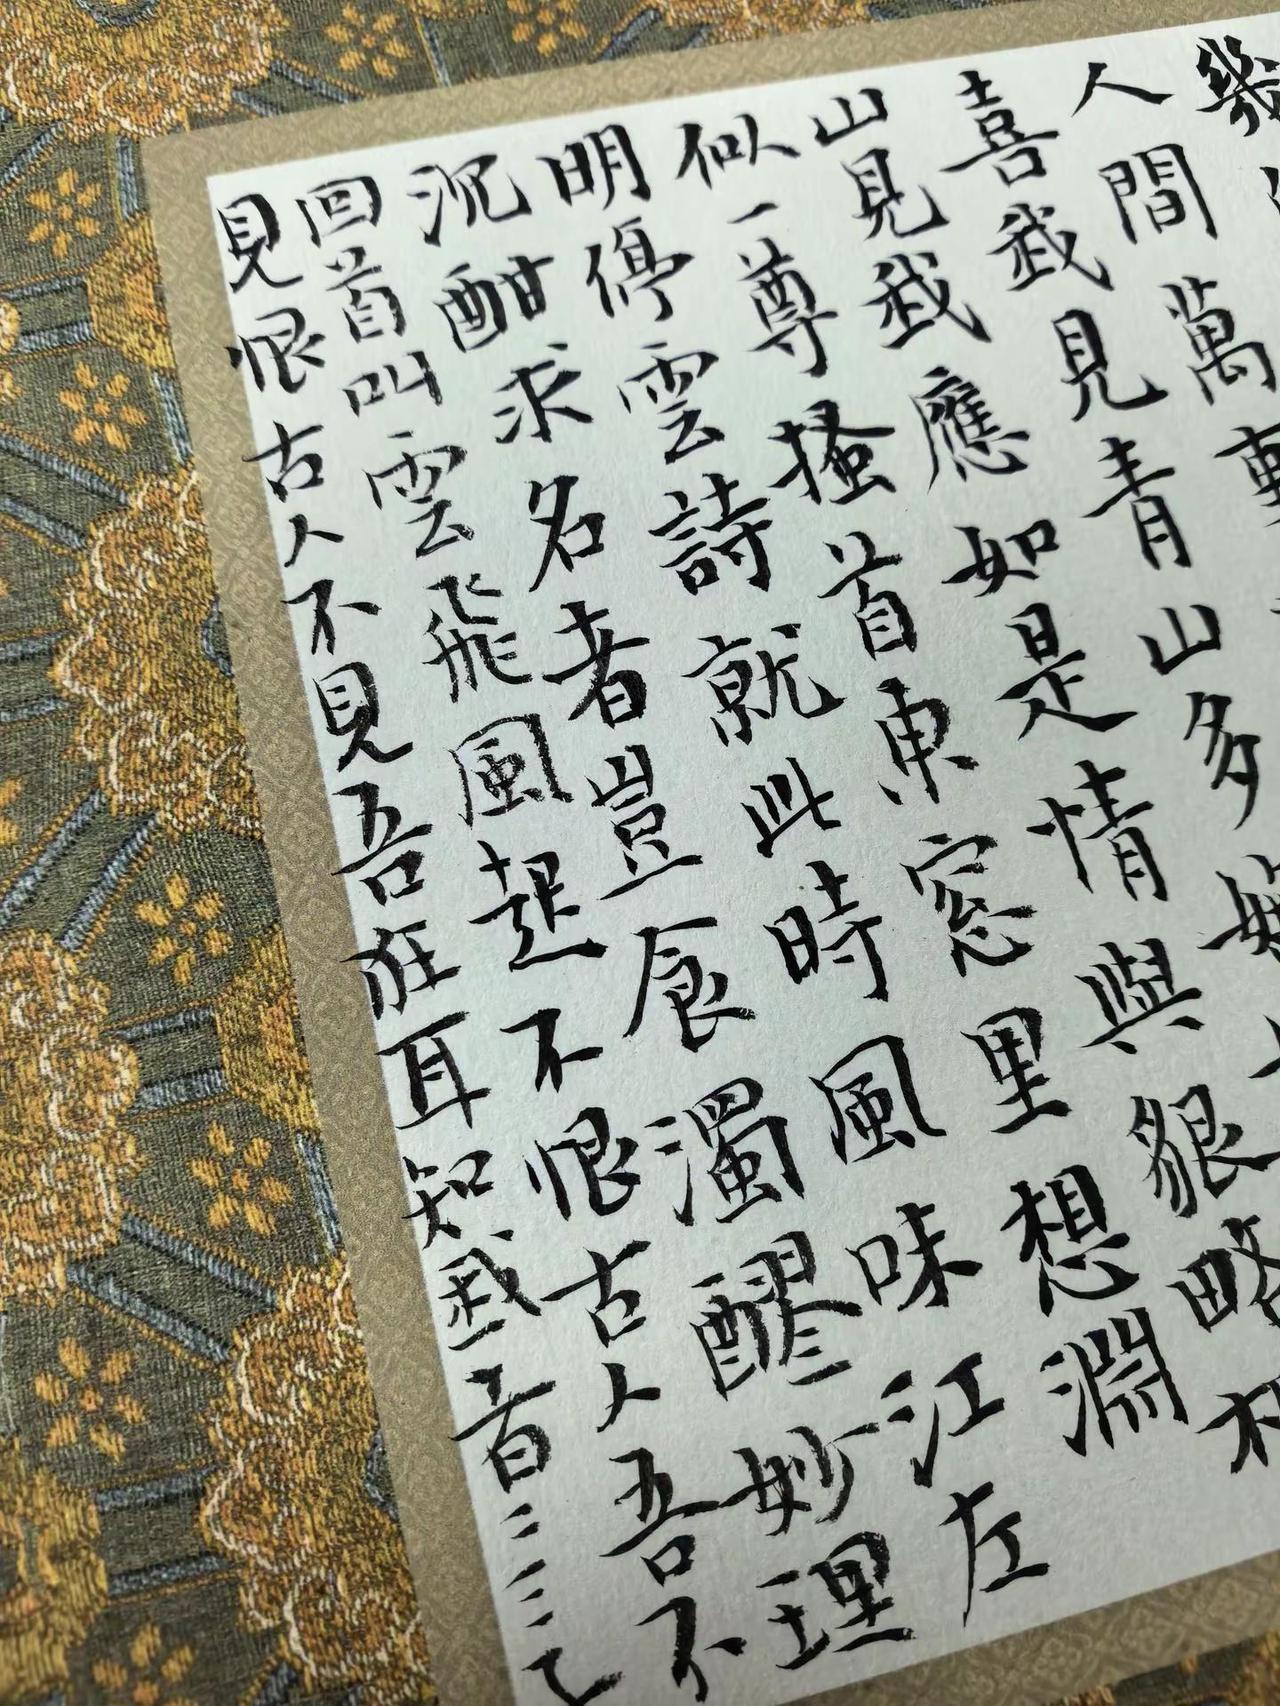 幾
人間萬
喜我見青山多嫵
山見我應如是情與貌略相
似一尊搔首東窓里想淵
明停雲詩就此時風味江左
沉酣求名者豈食濁醪妙理
回首叫雲飛風起不恨古人吾不
見恨古人不見吾狂耳知我音二三